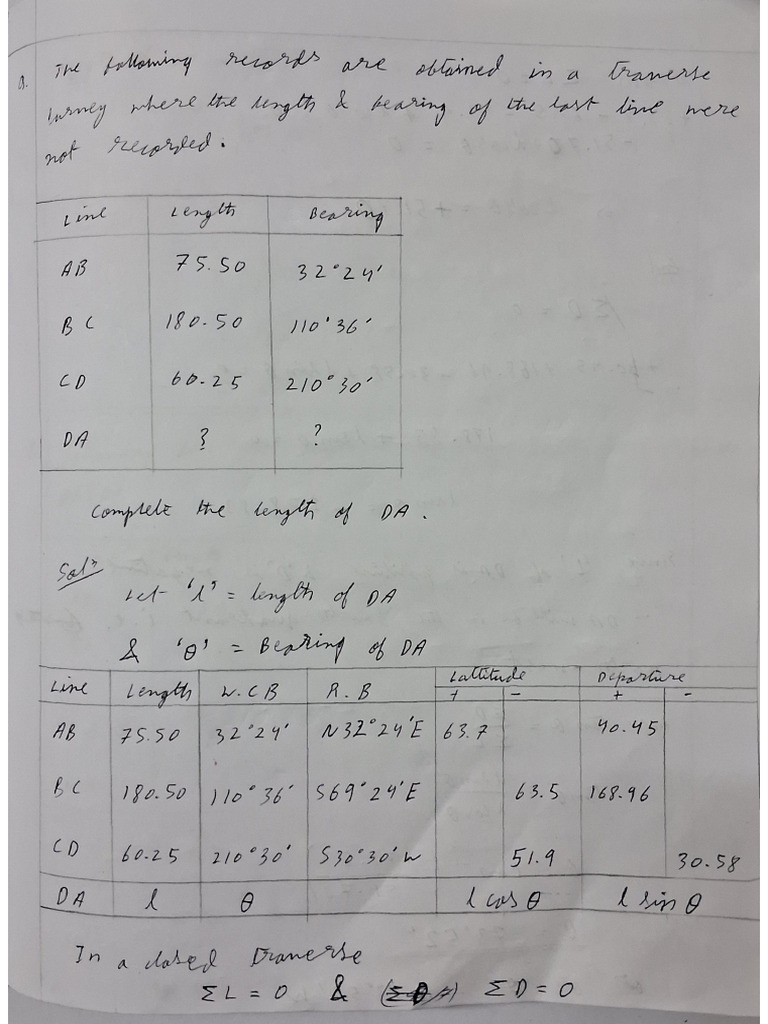 Q. The following records are obtained in a traverse
survey where the length & bearing of the last line were
not recorded.
Line Length Bearing
AB 75.50 32°24'
BC 180.50 110°36'
CD 60.25 210°30'
DA ? ?
Complete the length of DA.
Solⁿ
Let 'l' = length of DA
& 'θ' = Bearing of DA
Line Length W.CB R.B Lattitude Departure
+ - + -
AB 75.50 32°24' N32°24'E 63.7 40.45
BC 180.50 110°36' S69°24'E 63.5 168.96
CD 60.25 210°30' S30°30'W 51.9 30.58
DA l θ l cos θ l sin θ
In a closed traverse
ΣL = 0 & ΣD = 0